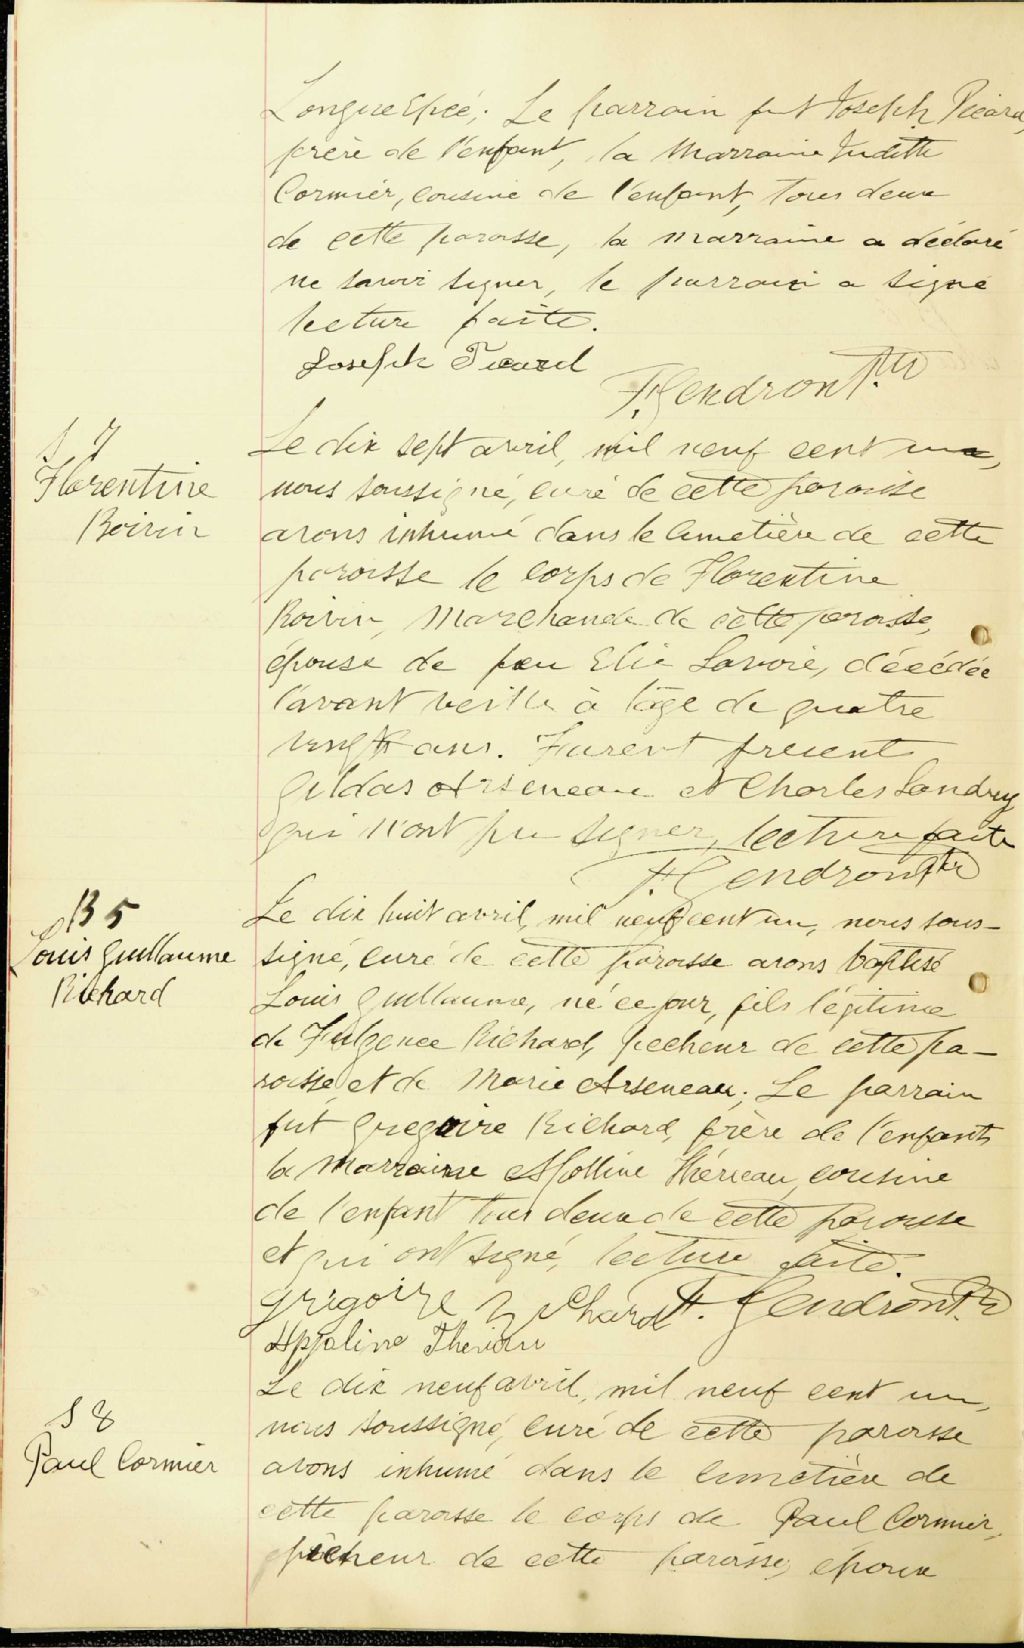 Longuepée; Le parrain fut Joseph Picard,
frère de l'enfant, la Marraine Judith
Cormier, cousine de l'enfant, tous deux
de cette paroisse, la marraine a déclaré
ne savoir signer, le parrain a signé
lecture faite.
Joseph Picard
F. Gendron Ptre
S 7
Florentine
Boivin
Le dix sept avril, mil neuf cent un,
nous soussigné, curé de cette paroisse
avons inhumé dans le cimetière de cette
paroisse le corps de Florentine
Boivin, Marchande de cette paroisse,
épouse de feu Elie Lavoie, décédée
l'avant veille à l'âge de quatre
vingt ans. Furent présent
Gildas Arseneau et Charles Landry
qui n'ont pu signer, lecture faite
F. Gendron Ptre
B 5
Louis Guillaume
Richard
Le dix huit avril, mil neuf cent un, nous sous-
signé, curé de cette paroisse avons baptisé
Louis Guillaume, né ce jour, fils légitime
de Fulgence Richard, pecheur de cette pa-
roisse, et de Marie Arseneau; Le parrain
fut Gregoire Richard, frère de l'enfant,
la Marraine Apolline Thérieau, cousine
de l'enfant tous deux de cette paroisse
et qui ont signé, lecture faite.
Grégoire Richard F. Gendron Ptre
Appoline Theriau
S 8
Paul Cormier
Le dix neuf avril, mil neuf cent un,
nous soussigné, curé de cette paroisse
avons inhumé dans le cimetière de
cette paroisse le corps de Paul Cormier,
pêcheur de cette paroisse, époux